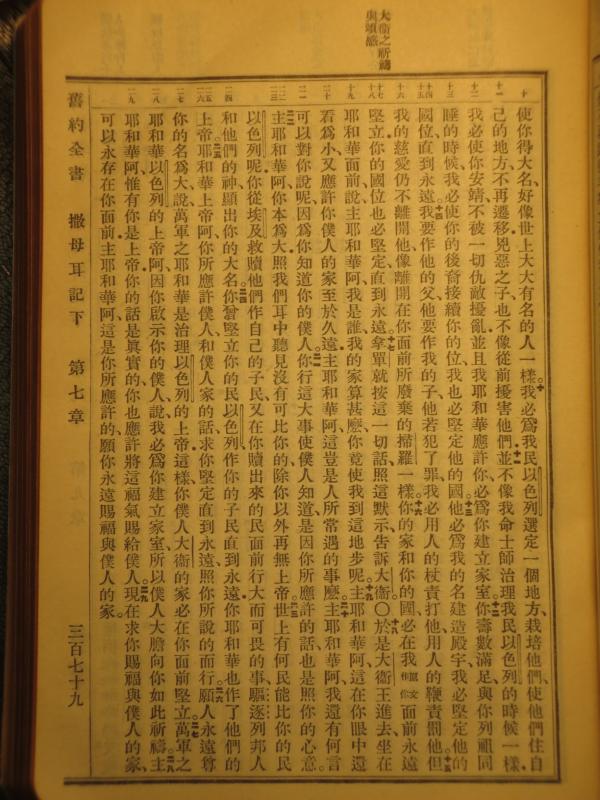 大衞之祈禱
與頌感
使你得大名、好像世上大大有名的人一樣。我必爲我民以色列選定一個地方、栽培他們、使他們住自
己的地方、不再遷移、兇惡之子也不像從前擾害他們、並不像我命士師治理我民以色列的時候一樣、
我必使你安靖、不被一切仇敵擾亂、並且我耶和華應許你、必爲你建立家室。你壽數滿足、與你列祖同
睡的時候、我必使你的後裔接續你的位、我也必堅定他的國。他必爲我的名建造殿宇、我必堅定他的
國位、直到永遠。我要作他的父、他要作我的子、他若犯了罪、我必用人的杖責打他、用人的鞭責罰他、但
我的慈愛仍不離開他、像離開在你面前所廢棄的掃羅一樣。你的家和你的國、必在我面前永遠
堅立、你的國位也必堅定、直到永遠。拿單就按這一切話、照這默示、告訴大衞。〇於是大衞王進去、坐在
耶和華面前、說、主耶和華阿、我是誰、我的家算甚麼、你竟使我到這地步呢。主耶和華阿、這在你眼中還
看爲小、又應許你僕人的家至於久遠、主耶和華阿、這豈是人所常遇的事麼。主耶和華阿、我還有何言
可以對你說呢、因爲你知道你的僕人。你行這大事使僕人知道、是因你所應許的話、也是照你的心意。
主耶和華阿、你本爲大、照我們耳中聽見、沒有可比你的、除你以外再無上帝。世上有何民能比你的民
以色列呢、你從埃及救贖他們作自己的子民、又在你贖出來的民面前行大而可畏的事、驅逐列邦人
和他們的神、顯出你的大名。你曾堅立你的民以色列作你的子民、直到永遠、你耶和華也作了他們的
上帝。耶和華上帝阿、你所應許僕人和僕人家的話、求你堅定直到永遠、照你所說的而行。願人永遠尊
你的名爲大、說、萬軍之耶和華是治理以色列的上帝、這樣、你僕人大衞的家必在你面前堅立。萬軍之
耶和華以色列的上帝阿、因你啟示你的僕人說、我必爲你建立家室、所以僕人大膽向你如此祈禱。主
耶和華阿、惟有你是上帝、你的話是眞實的、你也應許將這福氣賜給僕人。現在求你賜福與僕人的家、
可以永存在你面前、主耶和華阿、這是你所應許的、願你永遠賜福與僕人的家。
舊約全書 撒母耳記下 第七章 三百七十九